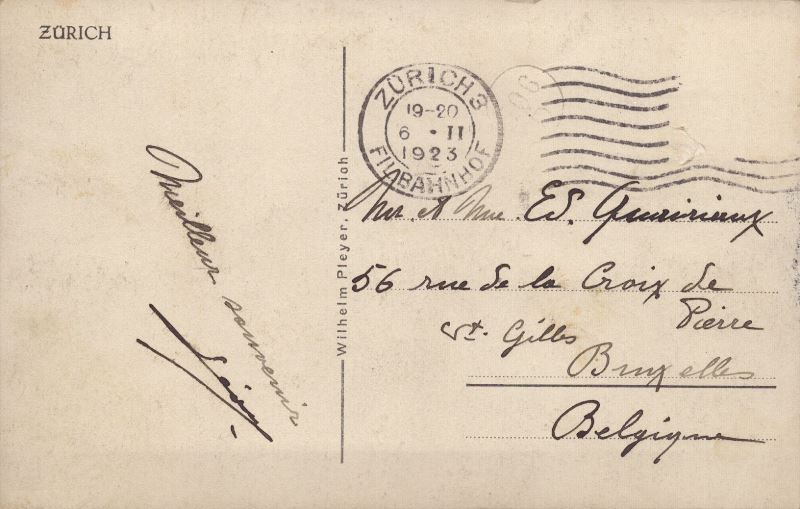 ZÜRICH
ZÜRICH 3
19-20
6 · II
1923
FIL. BAHNHOF
90
Meilleur souvenir
Wilhelm Pleyer, Zürich
Mr. et Mme. Ed.
56 rue de la Croix de
Pierre
St. Gilles
Bruxelles
Belgique